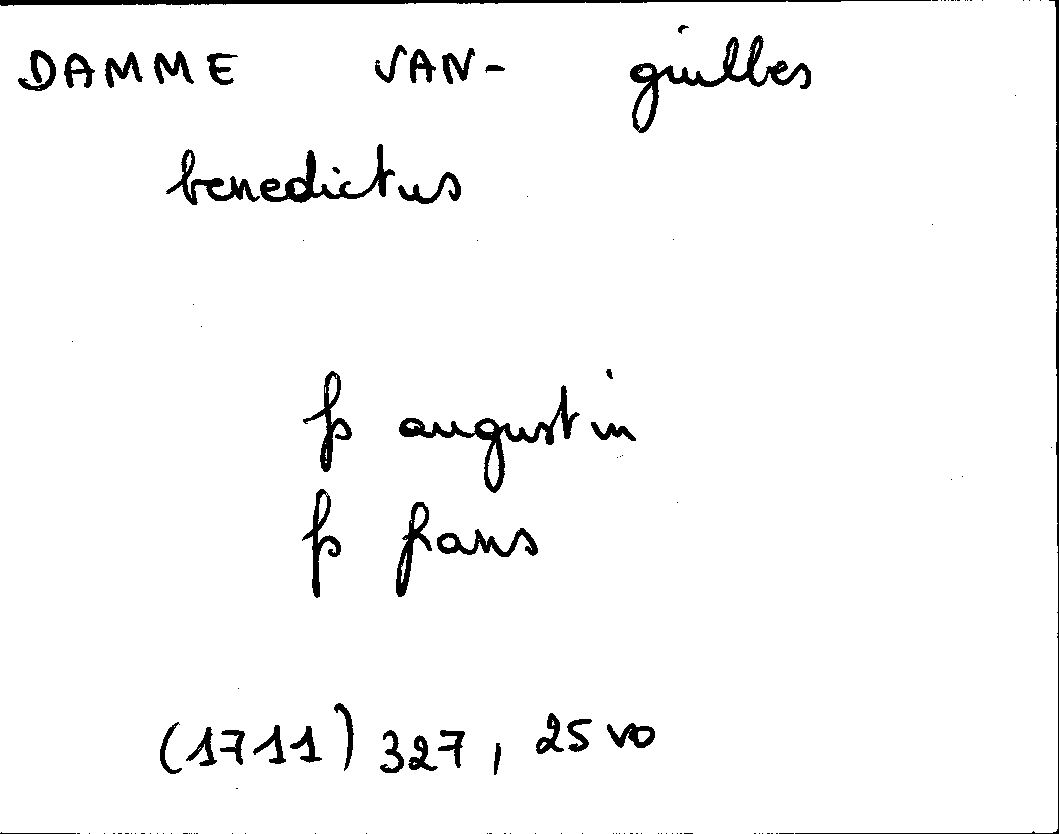 DAMME VAN- guilbes
benedictus
fs augustin
fs frans
(1711) 327, 25 vo